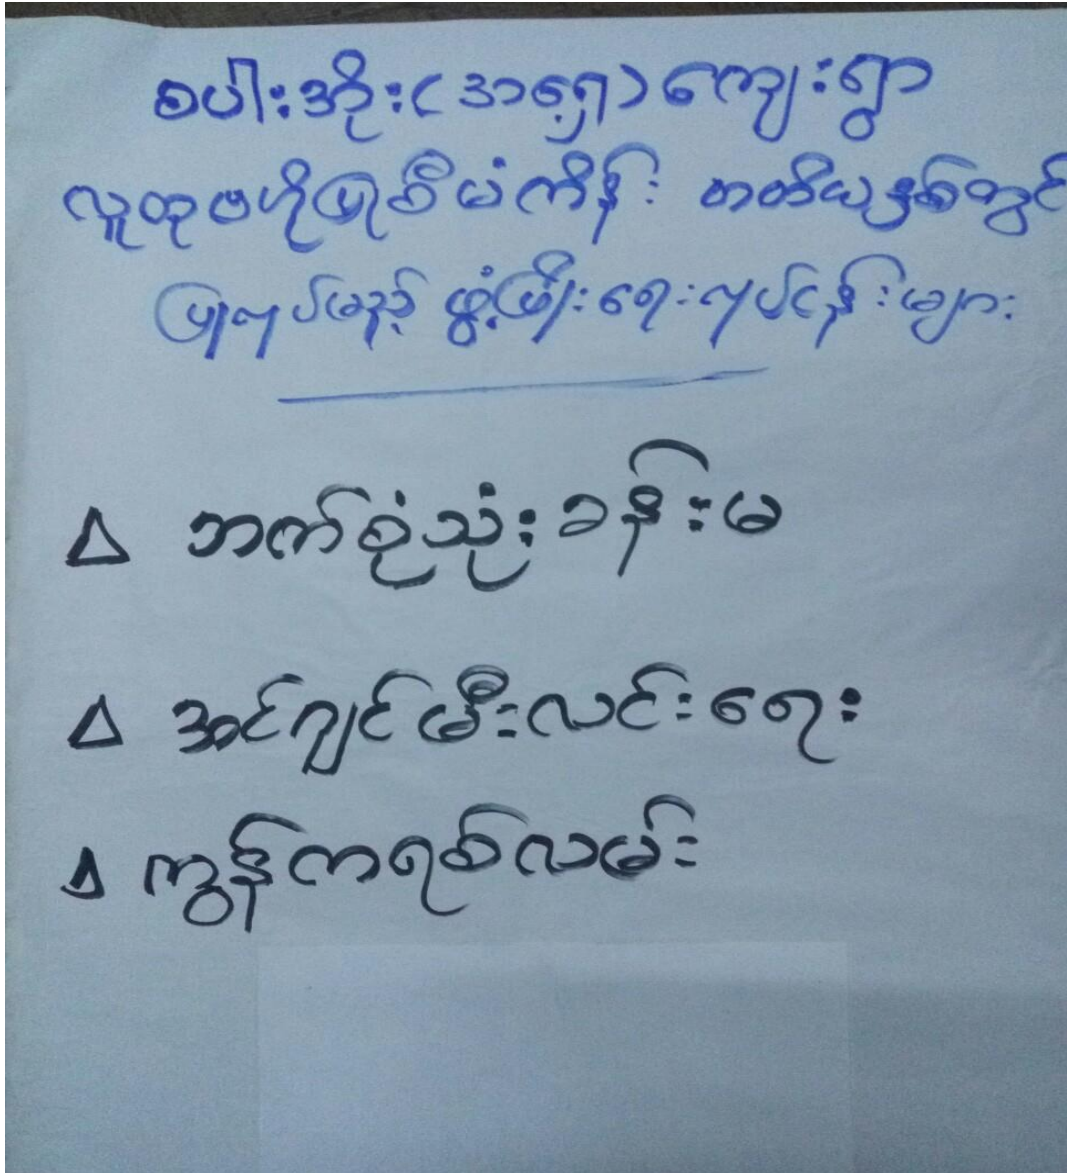 စပါးအိုး(အရှေ့)ကျေးရွာ
လူထုဗဟိုပြုစီမံကိန်း တတိယနှစ်တွင်
ပြုလုပ်မည့် ဖွံ့ဖြိုးရေးလုပ်ငန်းများ
Δ ဘက်စုံသုံးခန်းမ
Δ အင်ဂျင်မီးလင်းရေး
Δ ကွန်ကရစ်လမ်း